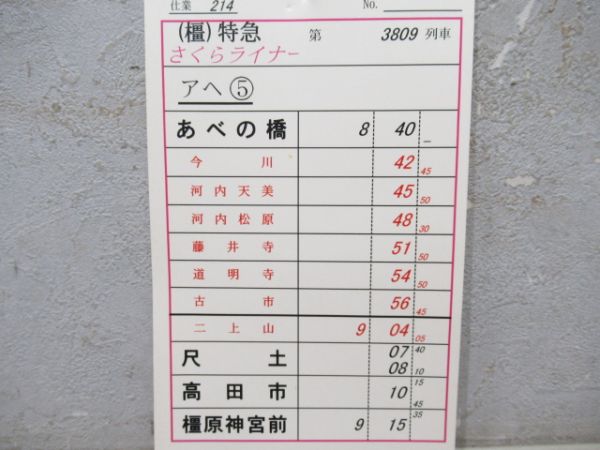 仕業 214 No.
(橿) 特急 第 3809 列車
さくらライナー
アヘ ⑤
あべの橋 8 40 –
今川 42 45
河内天美 45 50
河内松原 48 30
藤井寺 51 50
道明寺 54 50
古市 56 45
二上山 9 04 05
尺土 07 40
08 10
高田市 10 15
45
橿原神宮前 9 15 35